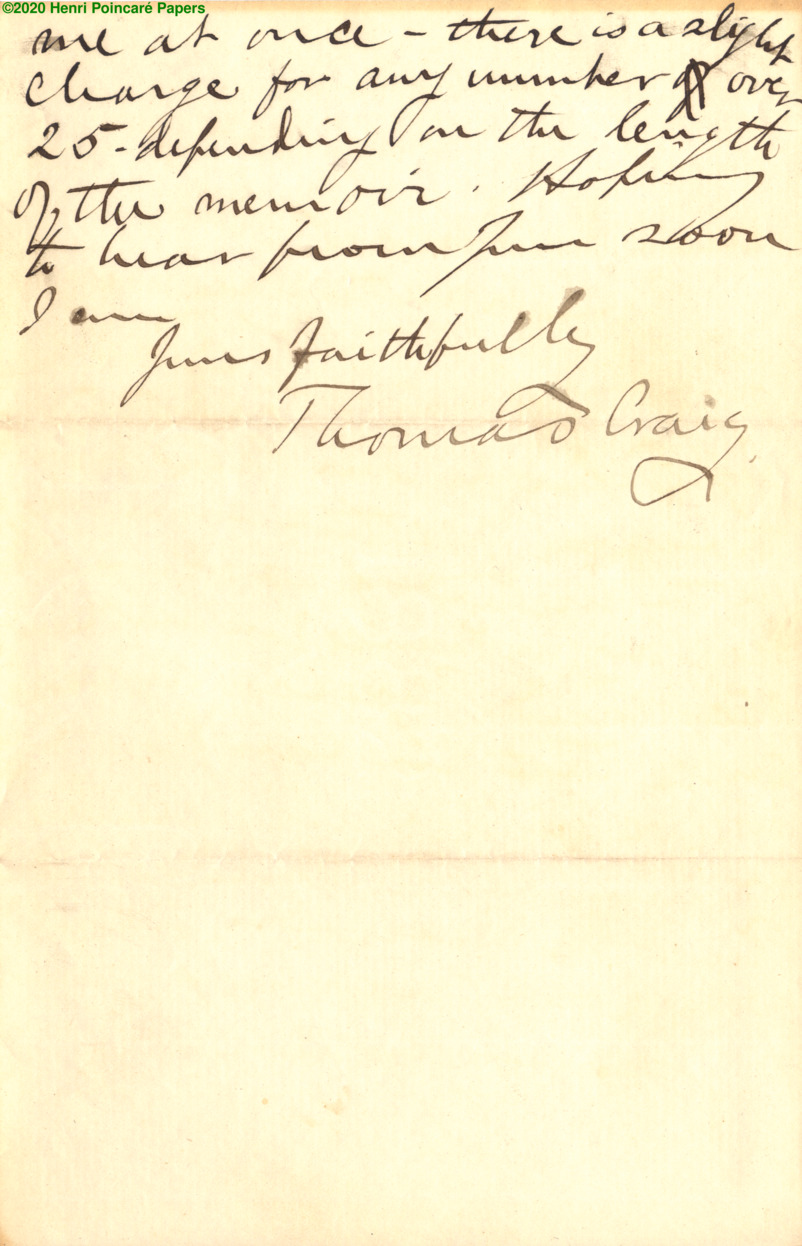 ©2020 Henri Poincaré Papers
me at once – there is a slight
charge for any number over
25 - depending on the length
of the memoir. Hoping
to hear from you soon
I am
Yours faithfully
Thomas Craig